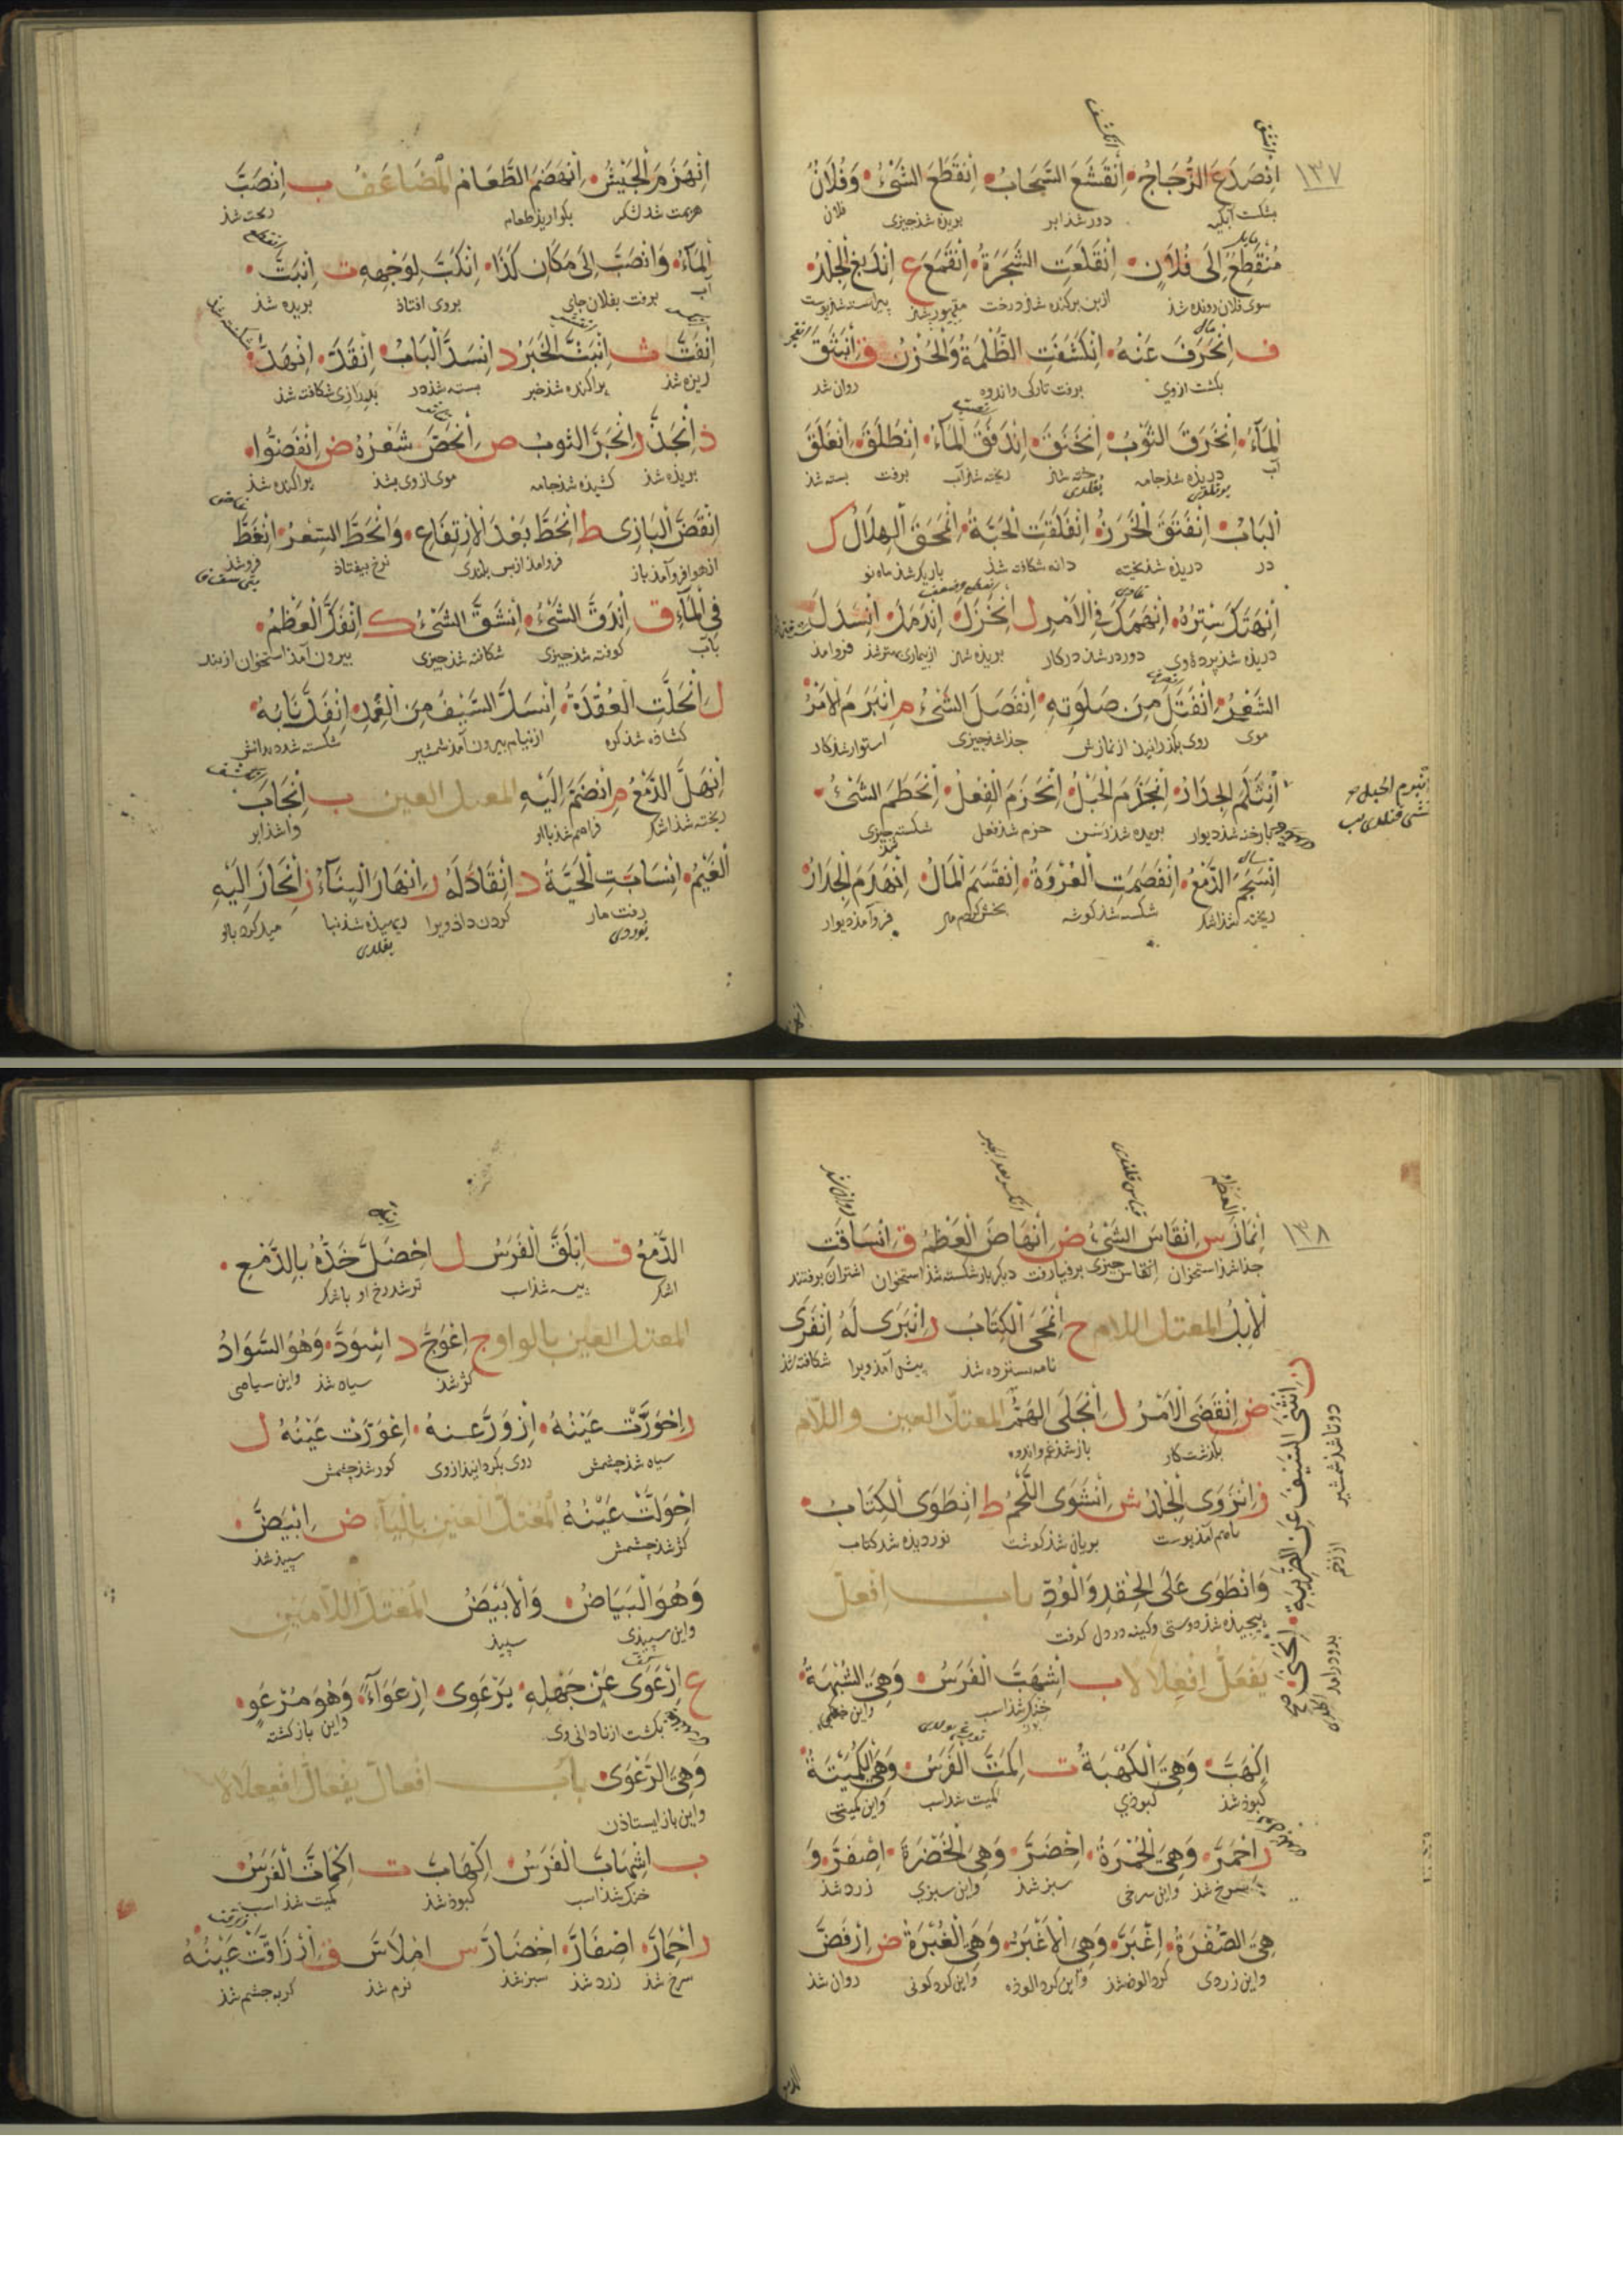 ١٣٧
اِنْصَدَعَ الزُّجَاجُ اِنْقَشَعَ السَّحَابُ اِنْقَطَعَ الشَّيْءُ وَفُلَانٌ
بشکست آبگینه دور شذ ابر بریذه شذ چیزی فلان
مُنْقَطِعٌ اِلَى فُلَانٍ اِنْقَلَعَتِ الشَّجَرَةُ اِنْقَمَعَ غ اِنْدَبَغَ الْجِلْدُ
سوی فلان رونده شذ ازبن برکنده شذ درخت مقهور شذ پیراسته شذ پوست
ف اِنْحَرَفَ عَنْهُ اِنْكَشَفَتِ الظُّلْمَةُ وَالْحُزْنُ ق اِنْبَثَقَ
بگشت ازوی برفت تاریکی واندوه روان شد
الْمَاءُ اِنْخَرَقَ الثَّوْبُ اِنْخَنَقَ اِنْدَفَقَ الْمَاءُ اِنْطَلَقَ اِنْغَلَقَ
آب دریذه شذ جامه ریخته شذ آب برفت بسته شذ
الْبَابُ اِنْفَتَقَ الْخَرَزُ اِنْفَلَقَتِ الْحَبَّةُ اِنْمَحَقَ الْهِلَالُ ك
در دریذه شذ بخیه دانه شکافته شذ باریک شذ ماه نو
اِنْهَتَكَ سِتْرُهُ اِنْهَمَكَ فِي الْاَمْرِ ل اِنْخَزَلَ اِنْدَمَلَ اِنْسَدَلَ
دریذه شذ پرده وی دور در شذ در کار بریذه شذ از بیماری بهتر شذ فرو امذ
الشَّعْرُ اِنْفَتَلَ مِنْ صَلَوتِهِ اِنْفَصَلَ الشَّيْءُ م اِنْبَرَمَ الْاَمْرُ
موی روی بگذرانیذن از نمازش جذا شذ چیزی استوار شذ کار
اِنْثَلَمَ الْجِدَارُ اِنْجَزَمَ الْحَبْلُ اِنْجَزَمَ الْفِعْلُ اِنْحَطَمَ الشَّيْءُ
رخنه شذ دیوار بریذه شذ رسن جزم شذ فعل شکسته چیزی
اِنْسَجَمَ الدَّمْعُ اِنْفَصَمَتِ الْعُرْوَةُ اِنْقَسَمَ الْمَالُ اِنْهَدَمَ الْجِدَارُ
ریخته شذ اشک شکسته شذ گوشه بخش کرده مال فروآمذ دیوار
اِنْهَزَمَ الْجَيْشُ اِنْهَضَمَ الطَّعَامُ الْمُضَاعَفُ ب اِنْصَبَّ
هزیمت شذ لشکر بگوارید طعام ریخته شذ
الْمَاءُ وَانْصَبَّ اِلَى مَكَانِ كَذَا اِنْكَبَّ لِوَجْهِهِ ت اِنْبَتَّ
آب برفت بفلان جای بروی افتاذ بریده شذ
اِنْفَتَّ ث اِنْبَثَّ الْخَبَرُ د اِنْسَدَّ الْبَابُ اِنْقَدَّ اِنْهَدَّ
ریزه شذ پراکنده شذ خبر بسته شذ در بدرازی شکافته شذ
ذ اِنْجَذَّ ر اِنْجَرَّ الثَّوْبُ ص اِنْحَصَّ شَعْرُهُ ض اِنْفَضُّوا
بریذه شذ کشیذه شذ جامه موی از وی بشذ پراکنده شذ
اِنْقَضَّ الْبَازِي ط اِنْحَطَّ بَعْدَ الْاِرْتِفَاعِ وَانْحَطَّ السِّعْرُ اِنْغَطَّ
از هوا فرو آمذ باز فروامذ از پس بلندی نرخ بیفتاذ فرو شذ
فِي الْمَاءِ ق اِنْدَقَّ الشَّيْءُ اِنْشَقَّ الشَّيْءُ ك اِنْفَكَّ الْعَظْمُ
بآب کوفته شذ چیزی شکافته شذ چیزی بیرون آمذ استخوان از بند
ل اِنْحَلَّتِ الْعُقْدَةُ اِنْسَلَّ السَّيْفُ مِنَ الْغِمْدِ اِنْفَلَّ نَابُهُ
گشاذه شذ گره از نیام بیرون آمذ شمشیر شکسته شد دندانش
اِنْهَلَّ الدَّمْعُ م اِنْضَمَّ اِلَيْهِ المعتل العين ب اِنْجَابَ
ریخته شذ اشک فراهم شذ با او واشذ ابر
الْغَيْمُ اِنْسَابَتِ الْحَيَّةُ د اِنْقَادَ لَهُ ر اِنْهَارَ الْبِنَاءُ ز اِنْحَازَ اِلَيْهِ
رفت مار گردن داذ ویرا ریهیذه شذ بنا میل کرد با او
١٣٨
اِنْمَازَ س اِنْقَاسَ الشَّيْءُ ض اِنْهَاضَ الْعَظْمُ ق اِنْسَاقَتِ
الْاِبِلُ المعتل اللام ح اِنْمَحَى الْكِتَابُ ر اِنْبَرَى لَهُ اِنْفَرَى
نامه سترده شذ پیش آمذ ویرا شکافته شذ
ض اِنْقَضَى الْاَمْرُ ل اِنْجَلَى الْهَمُّ المعتل العين واللام
بگذشت کار باز شذ غم واندوه
ز اِنْزَوَى الْجِلْدُ ش اِنْشَوَى اللَّحْمُ ط اِنْطَوَى الْكِتَابُ
باهم آمذ پوست بریان شذ گوشت نوردیذه شد کتاب
وَانْطَوَى عَلَى الْحِقْدِ وَالْوُدِّ باب اِفْعَلَّ
پیچیذه شذ دوستی وکینه در دل گرفت
يَفْعَلُّ اِفْعِلَالًا ب اِشْهَبَّ الْفَرَسُ وَهِيَ الشُّهْبَةُ
خنگ شذ اسب
اِكْهَبَّ وَهِيَ الْكُهْبَةُ ت اِكْمَتَّ الْفَرَسُ وَهِيَ الْكُمْتَةُ
کبوذ شذ کبوذی کمیت شد اسب واین کمیتی
ر اِحْمَرَّ وَهِيَ الْحُمْرَةُ اِخْضَرَّ وَهِيَ الْخُضْرَةُ اِصْفَرَّ وَ
سرخ شذ واین سرخی سبز شذ واین سبزی زرد شذ
هِيَ الصُّفْرَةُ اِغْبَرَّ وَهِيَ الْاَغْبَرُ وَهِيَ الْغُبْرَةُ ض اِرْفَضَّ
واین زردی گرد الوذ شذ واین گرد الوذه واین گرد گونی روان شذ
ن اِنْثَنَى السَّيْفُ عَنِ الضَّرِيبَةِ اِنْحَنَى صح
دوتا شذ شمشیر از زخم
الدَّمْعُ ق اِبْلَقَّ الْفَرَسُ ل اِخْضَلَّ خَدُّهُ بِالدَّمْعِ
اشک پیسه شذ اسب تر شد رخ او باشک
المعتل العين بالواو ج اِعْوَجَّ د اِسْوَدَّ وَهُوَ السَّوَادُ
کژ شذ سیاه شذ واین سیاهی
ر اِحْوَرَّتْ عَيْنُهُ اِزْوَرَّ عَنْهُ اِعْوَرَّتْ عَيْنُهُ ل
سیاه شذ چشمش روی بگردانیذ ازوی کور شذ چشمش
اِحْوَلَّتْ عَيْنُهُ الْمُعْتَلُّ الْعَيْنِ بِالْيَاءِ ض اِبْيَضَّ
کژ شذ چشمش سپیذ شذ
وَهُوَ الْبَيَاضُ وَالْاَبْيَضُ الْمُعْتَلُّ اللَّامَيْنِ
واین سپیذی سپیذ
ع اِرْعَوَى عَنْ جَهْلِهِ يَرْعَوِى اِرْعِوَاءً وَهُوَ مُرْعَوٍ
بگشت از نادانی وی واین بازگشته
وَهِيَ الرَّعْوَى بَابُ اِفْعَالَّ يَفْعَالُّ اِفْعِيعَلَالًا
واین باز ایستاذن
ب اِشْهَابَّ الْفَرَسُ اِكْهَابَّ ت اِكْمَاتَّ الْفَرَسُ
خنگ شذ اسب کبوذ شذ کمیت شذ اسب
ر اِحْمَارَّ اِصْفَارَّ اِخْضَارَّ س اِمْلَاسَّ ق اِزْرَاقَّتْ عَيْنُهُ
سرخ شذ زرد شذ سبز شذ نرم شذ گربه چشم شذ